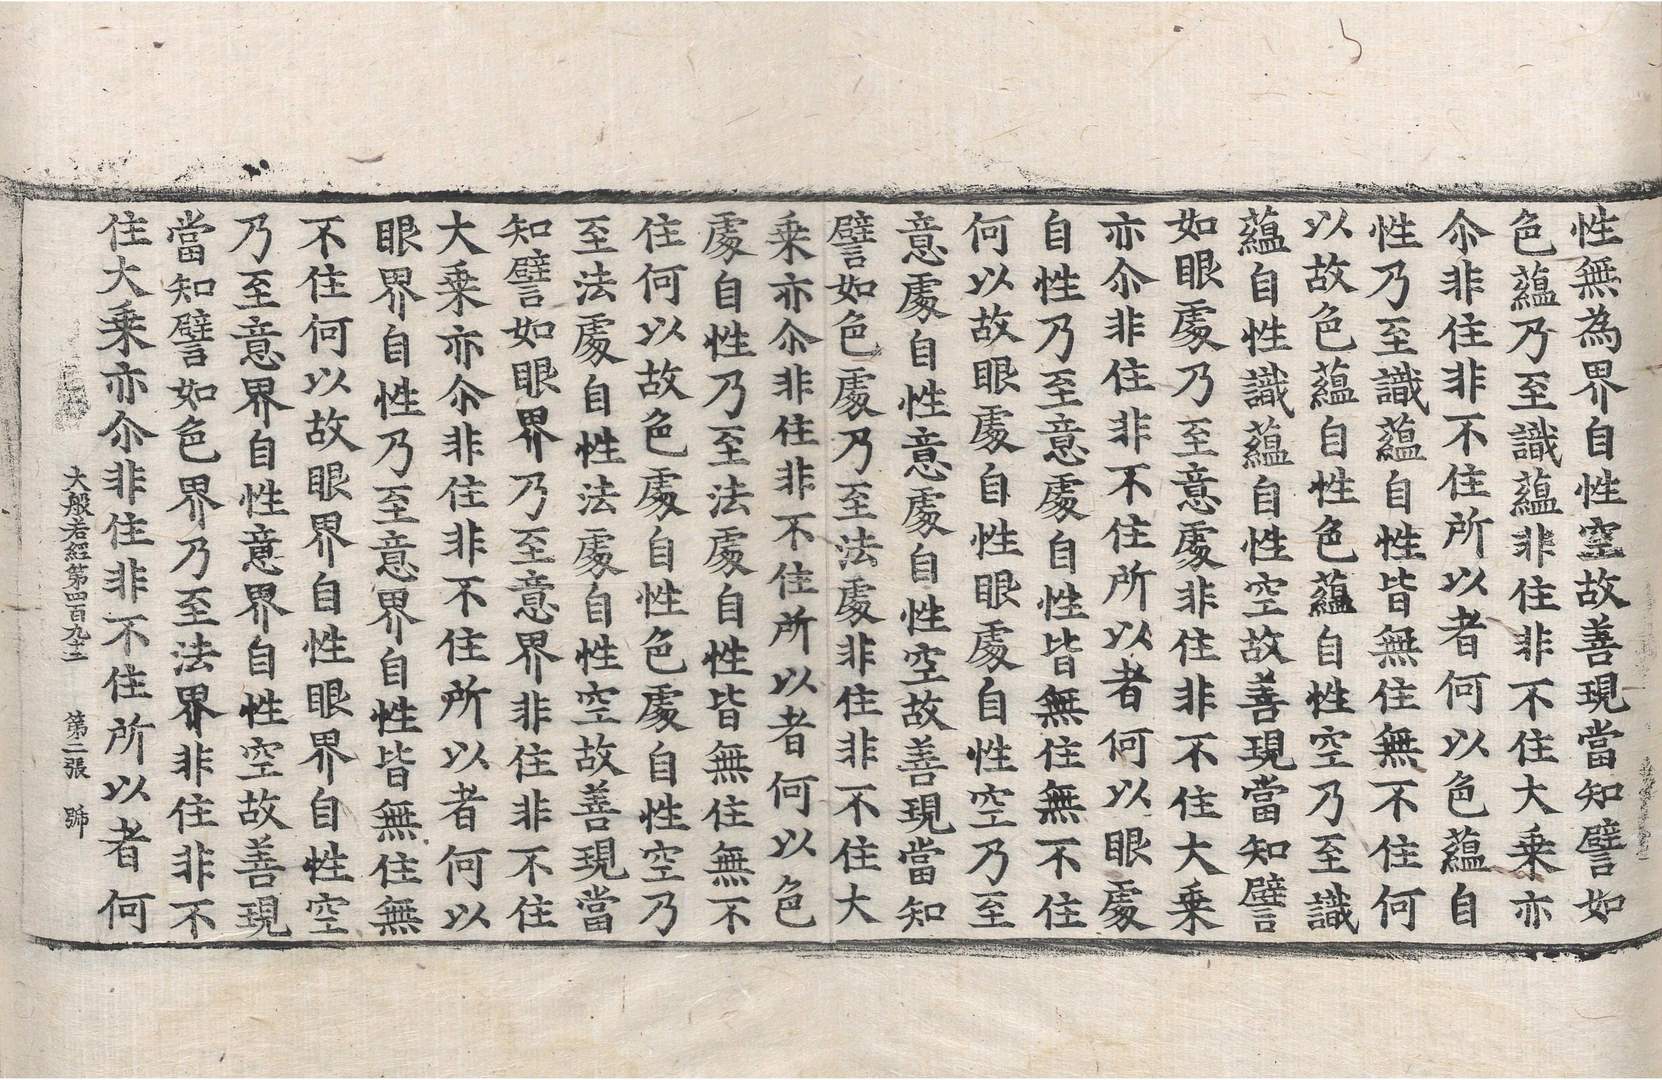 性無為界自性空故善現當知譬如
色蘊乃至識蘊非住非不住大乗亦
尒非住非不住所以者何以色蘊自
性乃至識蘊自性皆無住無不住何
以故色蘊自性色蘊自性空乃至識
蘊自性識蘊自性空故善現當知譬
如眼處乃至意處非住非不住大乗
亦尒非住非不住所以者何以眼處
自性乃至意處自性皆無住無不住
何以故眼處自性眼處自性空乃至
意處自性意處自性空故善現當知
譬如色處乃至法處非住非不住大
乗亦尒非住非不住所以者何以色
處自性乃至法處自性皆無住無不
住何以故色處自性色處自性空乃
至法處自性法處自性空故善現當
知譬如眼界乃至意界非住非不住
大乗亦尒非住非不住所以者何以
眼界自性乃至意界自性皆無住無
不住何以故眼界自性眼界自性空
乃至意界自性意界自性空故善現
當知譬如色界乃至法界非住非不
住大乗亦尒非住非不住所以者何
大般若經第四百九十二 第二張 號